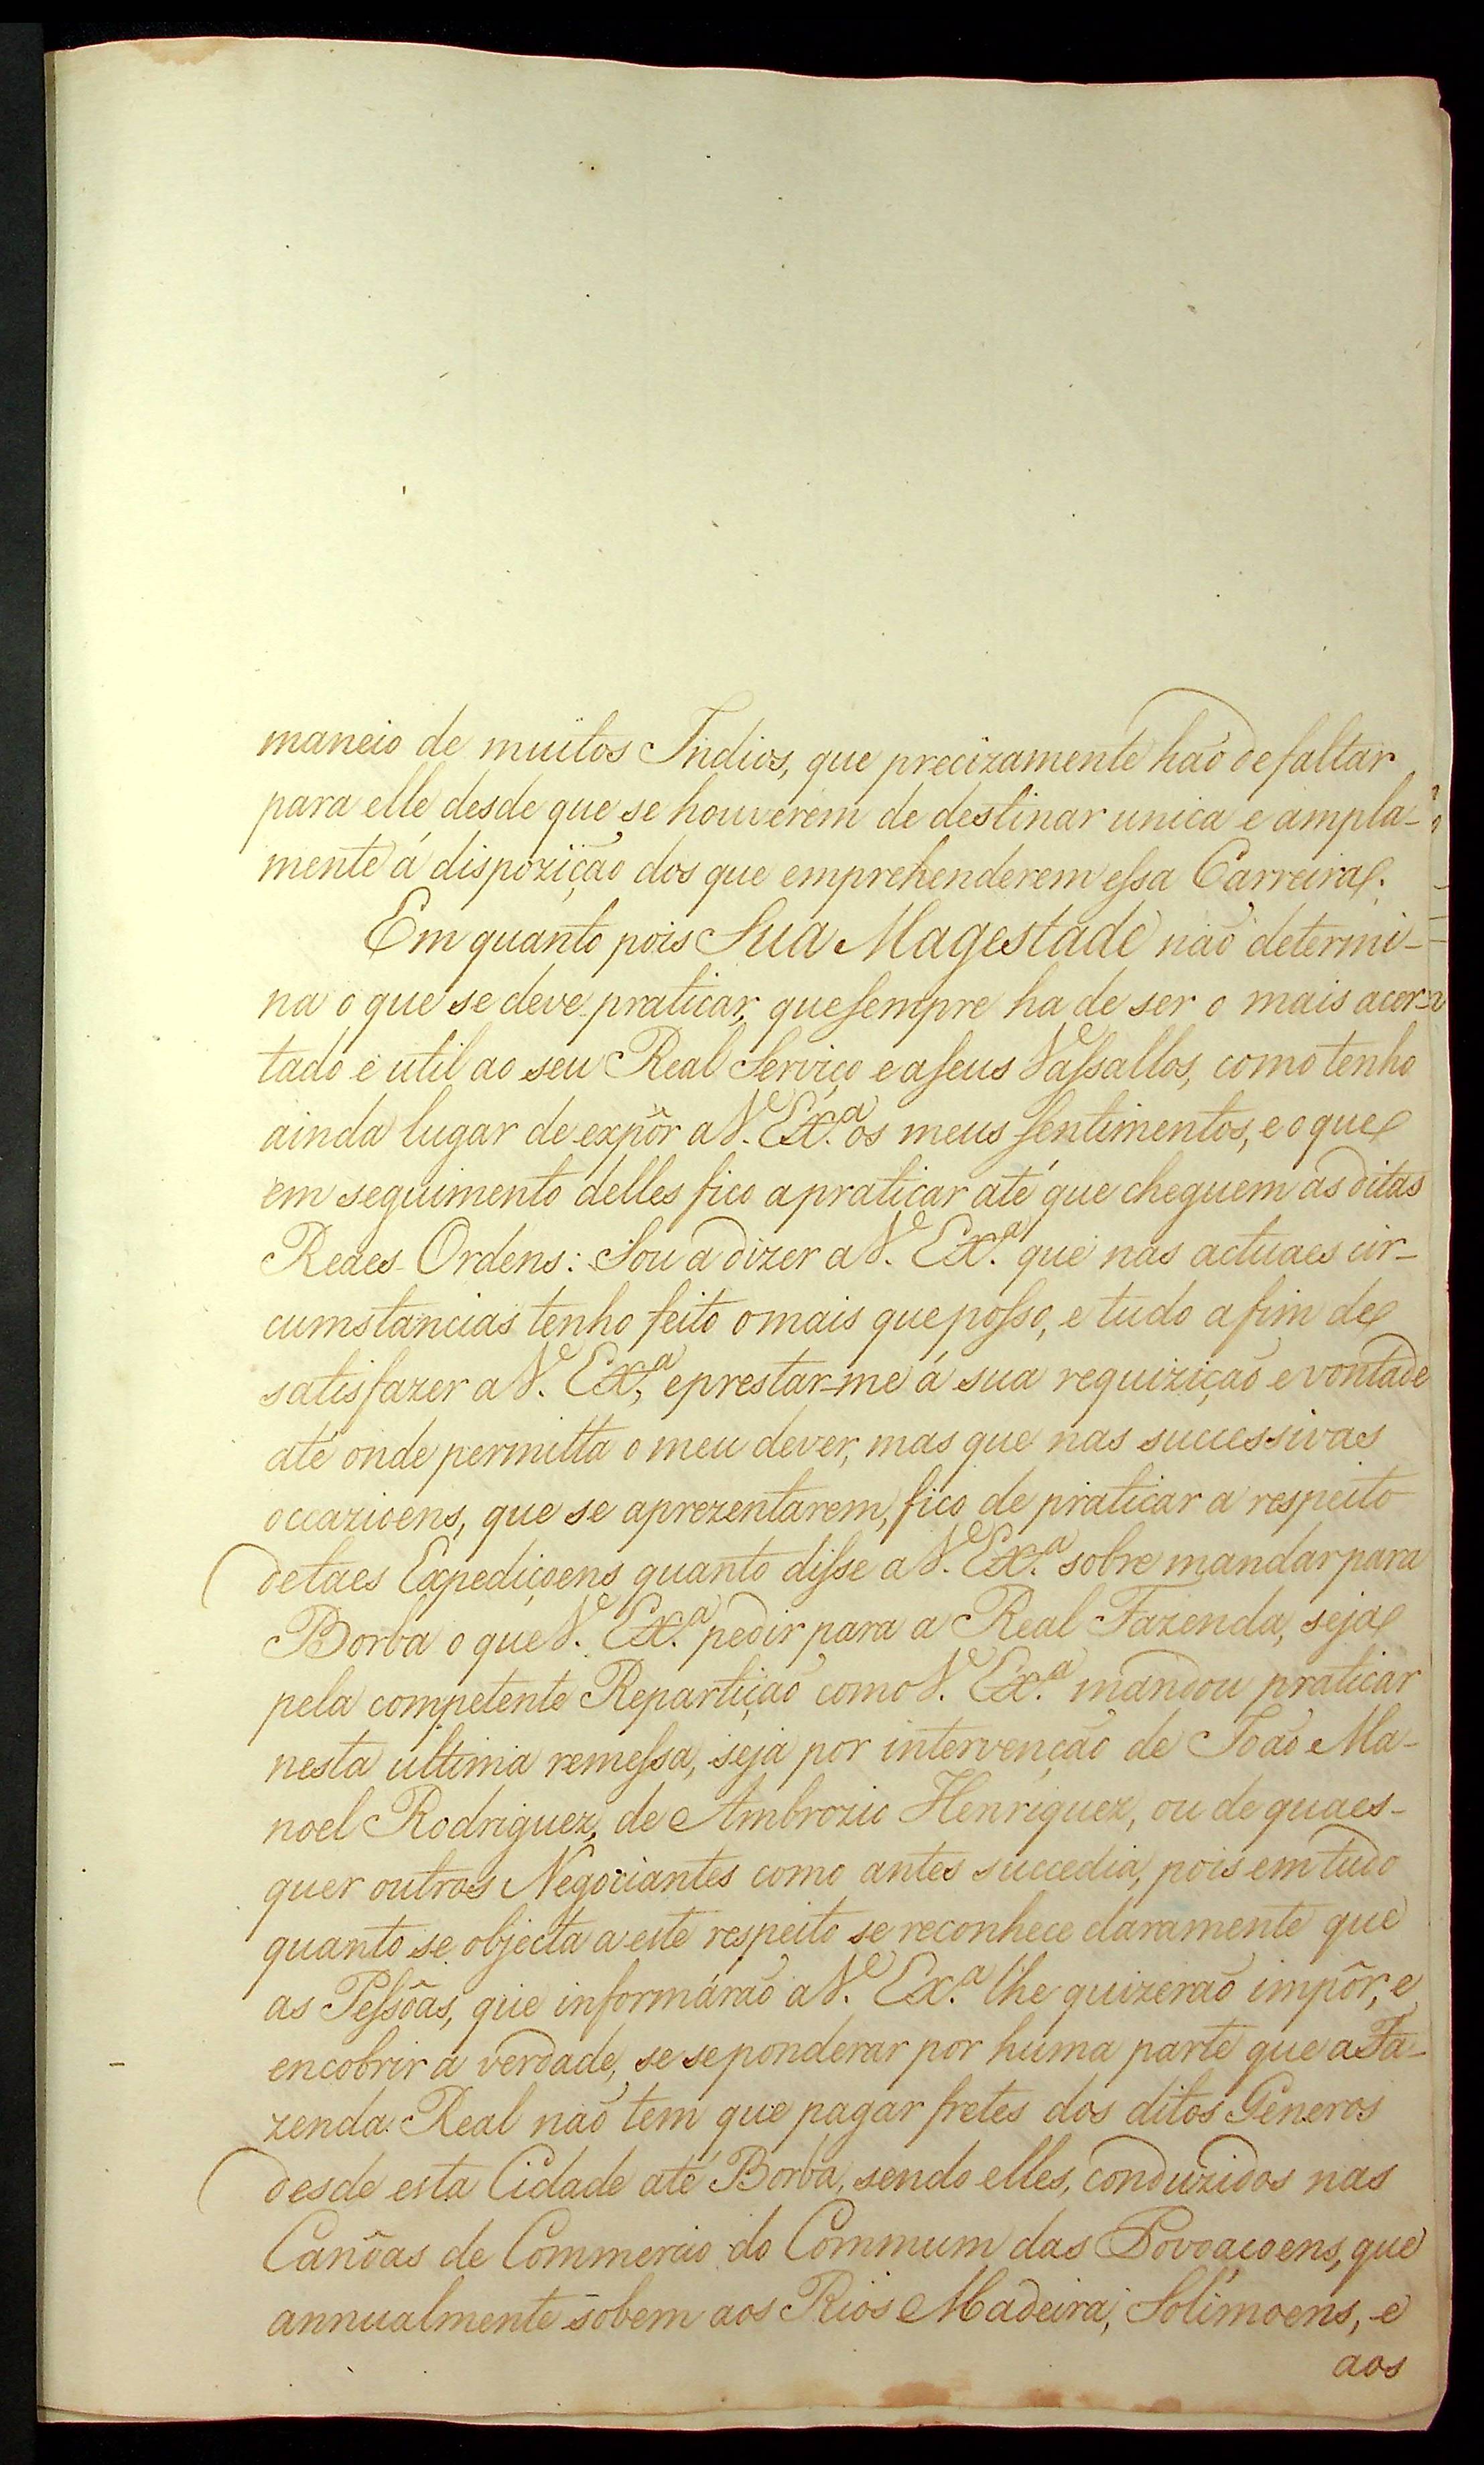 maneio de muitos Indios, que precizamente haõ de faltar
para elle desde que se houverem de destinar unica e ampla-
mente á dispoziçaõ dos que emprehenderem essa Carreira.
Em quanto pois Sua Magestade naõ determi-
na o que se deve praticar, que sempre ha de ser o mais acer-
tado e util ao seu Real Serviço e a seus Vassallos, como tenho
ainda lugar de expôr a V. Ex.ª os meus sentimentos, e o que
em seguimento delles fico a praticar até que cheguem as ditas
Reaes Ordens: Sou a dizer a V. Ex.ª que nas actuaes cir-
cumstancias tenho feito o mais que posso, e tudo a fim de
satisfazer a V. Ex.ª, e prestar-me á sua requiziçaõ e vontade
até onde permitta o meu dever, mas que nas successivas
occazioens, que se aprezentarem, fico de praticar a respeito
de taes Expediçoens quanto disse a V. Ex.ª sobre mandar para
Borba o que V. Ex.ª pedir para a Real Fazenda, seja
pela competente Repartiçaõ como V. Ex.ª mandou praticar
nesta ultima remessa, seja por intervençaõ de Joaõ Ma-
noel Rodriguez, de Ambrozio Henriquez, ou de quaes-
quer outros Negociantes como antes succedia, pois em tudo
quanto se objecta a este respeito se reconhece claramente que
as Pessôas, que informáraõ a V. Ex.ª lhe quizeraõ impôr, e
encobrir a verdade, se se ponderar por huma parte que a Fa-
zenda Real naõ tem que pagar fretes dos ditos Generos
desde esta Cidade até Borba, sendo elles conduzidos nas
Canôas de Commercio do Commum das Povoaçoens, que
annualmente sobem aos Rios Madeira, Solimoens, e
aos